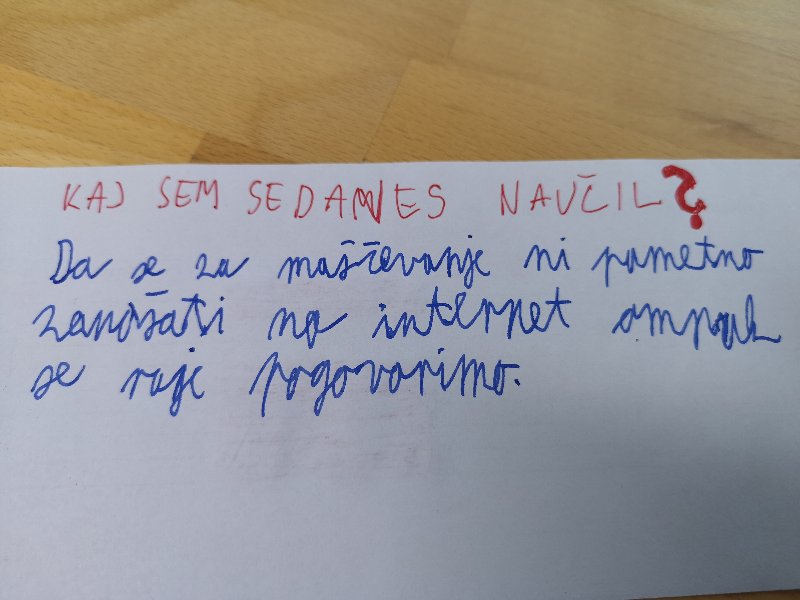 KAJ SEM SE DANES NAUČIL?
Da se za maščevanje ni pametno
zanašati na internet ampak
se raje pogovorimo.